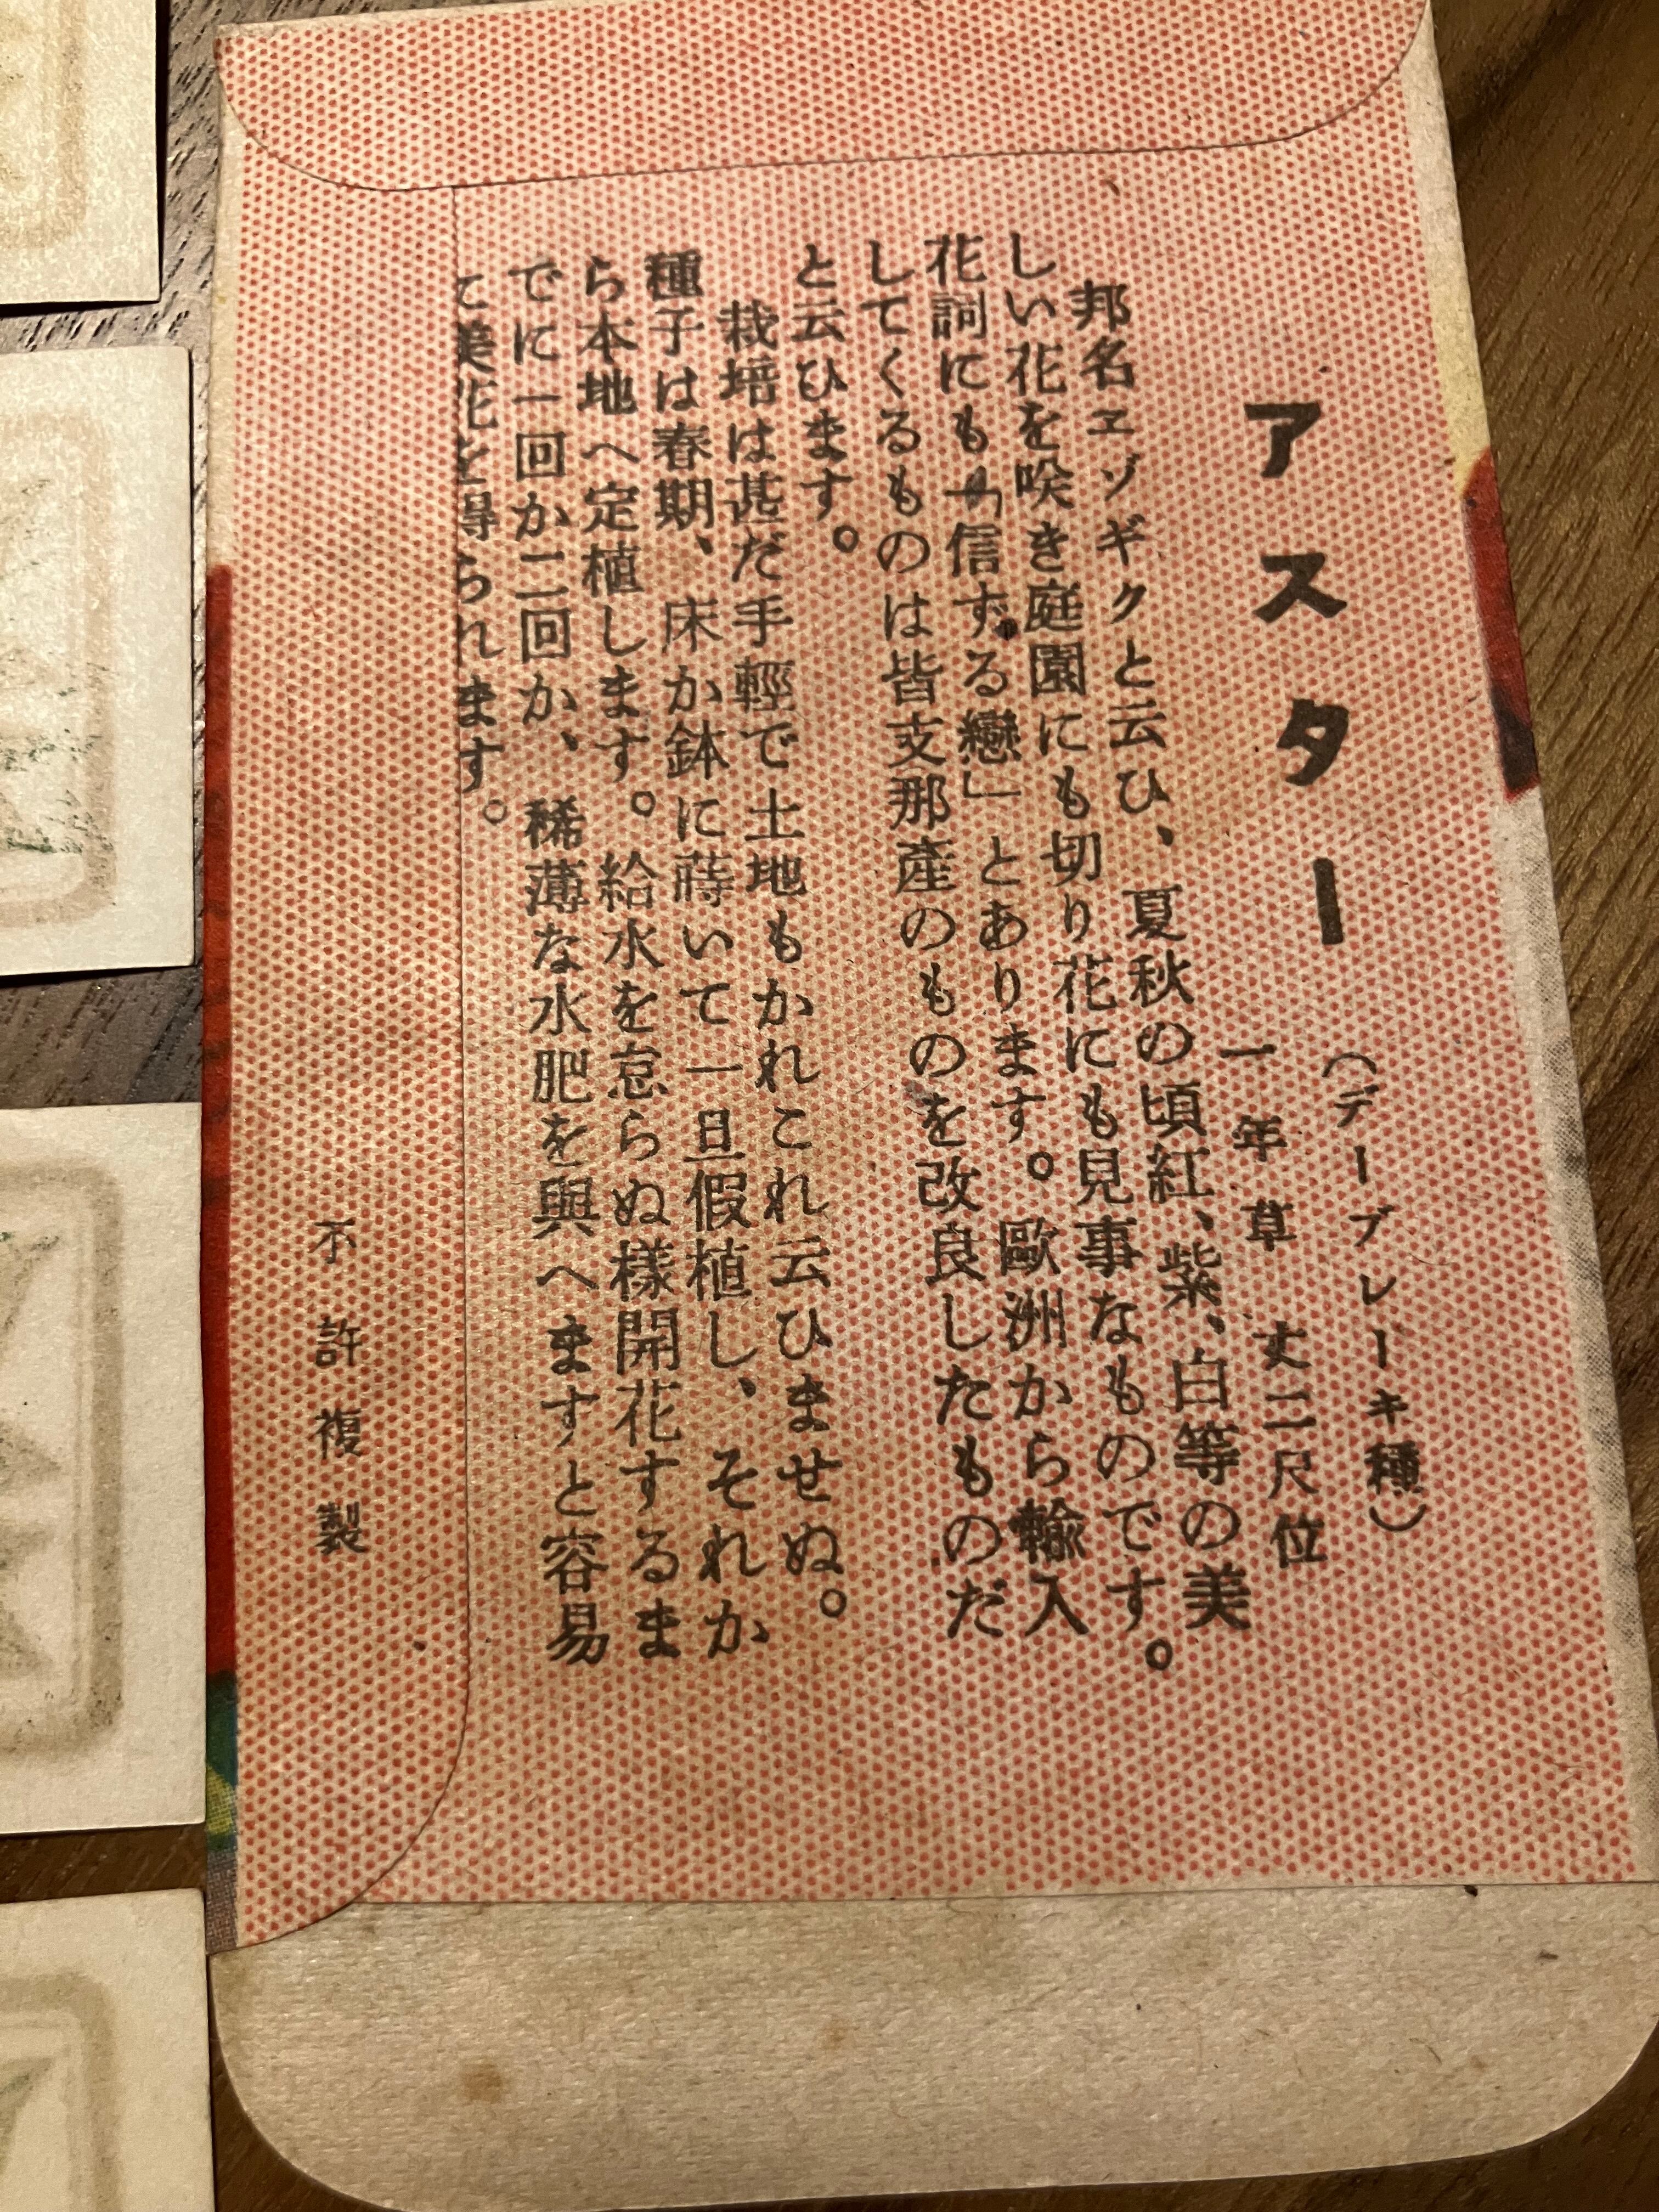 アスター
（デーブレーキ種）
一年草　丈二尺位
邦名ヱゾギクと云ひ、夏秋の頃紅、紫、白等の美
しい花を咲き庭園にも切り花にも見事なものです。
花詞にも「信ずる戀」とあります。歐洲から輸入
してくるものは皆支那産のものを改良したものだ
と云ひます。
栽培は甚だ手輕で土地もかれこれ云ひませぬ。
種子は春期、床か鉢に蒔いて一旦假植し、それか
ら本地へ定植します。給水を怠らぬ様開花するま
でに一回か二回か、稀薄な水肥を與へますと容易
て美花を得られます。
不許複製